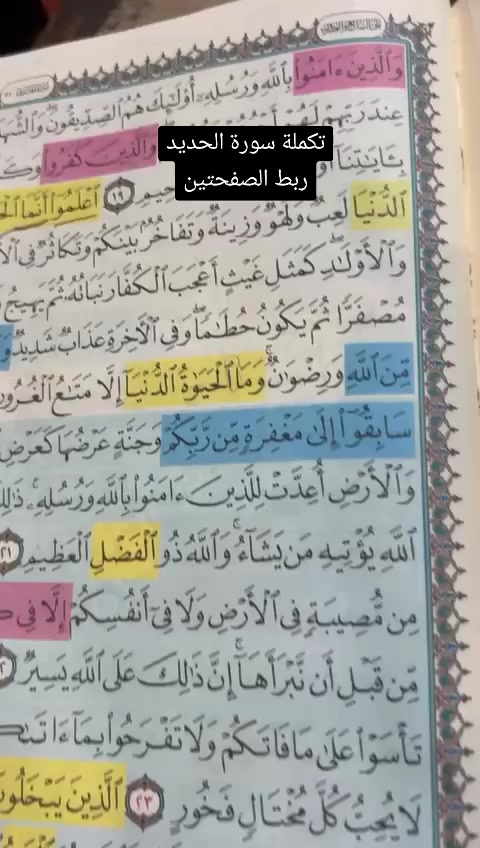 تكملة سورة الحديد
ربط الصفحتين
وَٱلَّذِينَ ءَامَنُوا۟ بِٱللَّهِ وَرُسُلِهِۦٓ أُو۟لَٰٓئِكَ هُمُ ٱلصِّدِّيقُونَ
عِندَ رَبِّهِمْ لَهُمْ وَٱلَّذِينَ كَفَرُوا۟
بِـَٔايَٰتِنَآ ١٩ ٱعْلَمُوٓا۟ أَنَّمَا
ٱلدُّنْيَا لَعِبٌ وَلَهْوٌ وَزِينَةٌ وَتَفَاخُرٌۢ بَيْنَكُمْ وَتَكَاثُرٌ فِى
وَٱلْأَوْلَٰدِ كَمَثَلِ غَيْثٍ أَعْجَبَ ٱلْكُفَّارَ نَبَاتُهُۥ ثُمَّ يَهِيجُ
مُصْفَرًّا ثُمَّ يَكُونُ حُطَٰمًا وَفِى ٱلْـَٔاخِرَةِ عَذَابٌ شَدِيدٌ
مِّنَ ٱللَّهِ وَرِضْوَٰنٌ وَمَا ٱلْحَيَوٰةُ ٱلدُّنْيَآ إِلَّا مَتَٰعُ ٱلْغُرُورِ
سَابِقُوٓا۟ إِلَىٰ مَغْفِرَةٍ مِّن رَّبِّكُمْ وَجَنَّةٍ عَرْضُهَا كَعَرْضِ
وَٱلْأَرْضِ أُعِدَّتْ لِلَّذِينَ ءَامَنُوا۟ بِٱللَّهِ وَرُسُلِهِۦ
ٱللَّهِ يُؤْتِيهِ مَن يَشَآءُ وَٱللَّهُ ذُو ٱلْفَضْلِ ٱلْعَظِيمِ ٢١
مِن مُّصِيبَةٍ فِى ٱلْأَرْضِ وَلَا فِىٓ أَنفُسِكُمْ إِلَّا فِى
مِّن قَبْلِ أَن نَّبْرَأَهَآ إِنَّ ذَٰلِكَ عَلَى ٱللَّهِ يَسِيرٌ
تَأْسَوْا۟ عَلَىٰ مَا فَاتَكُمْ وَلَا تَفْرَحُوا۟ بِمَآ ءَاتَىٰكُمْ
لَا يُحِبُّ كُلَّ مُخْتَالٍ فَخُورٍ ٢٣ ٱلَّذِينَ يَبْخَلُونَ